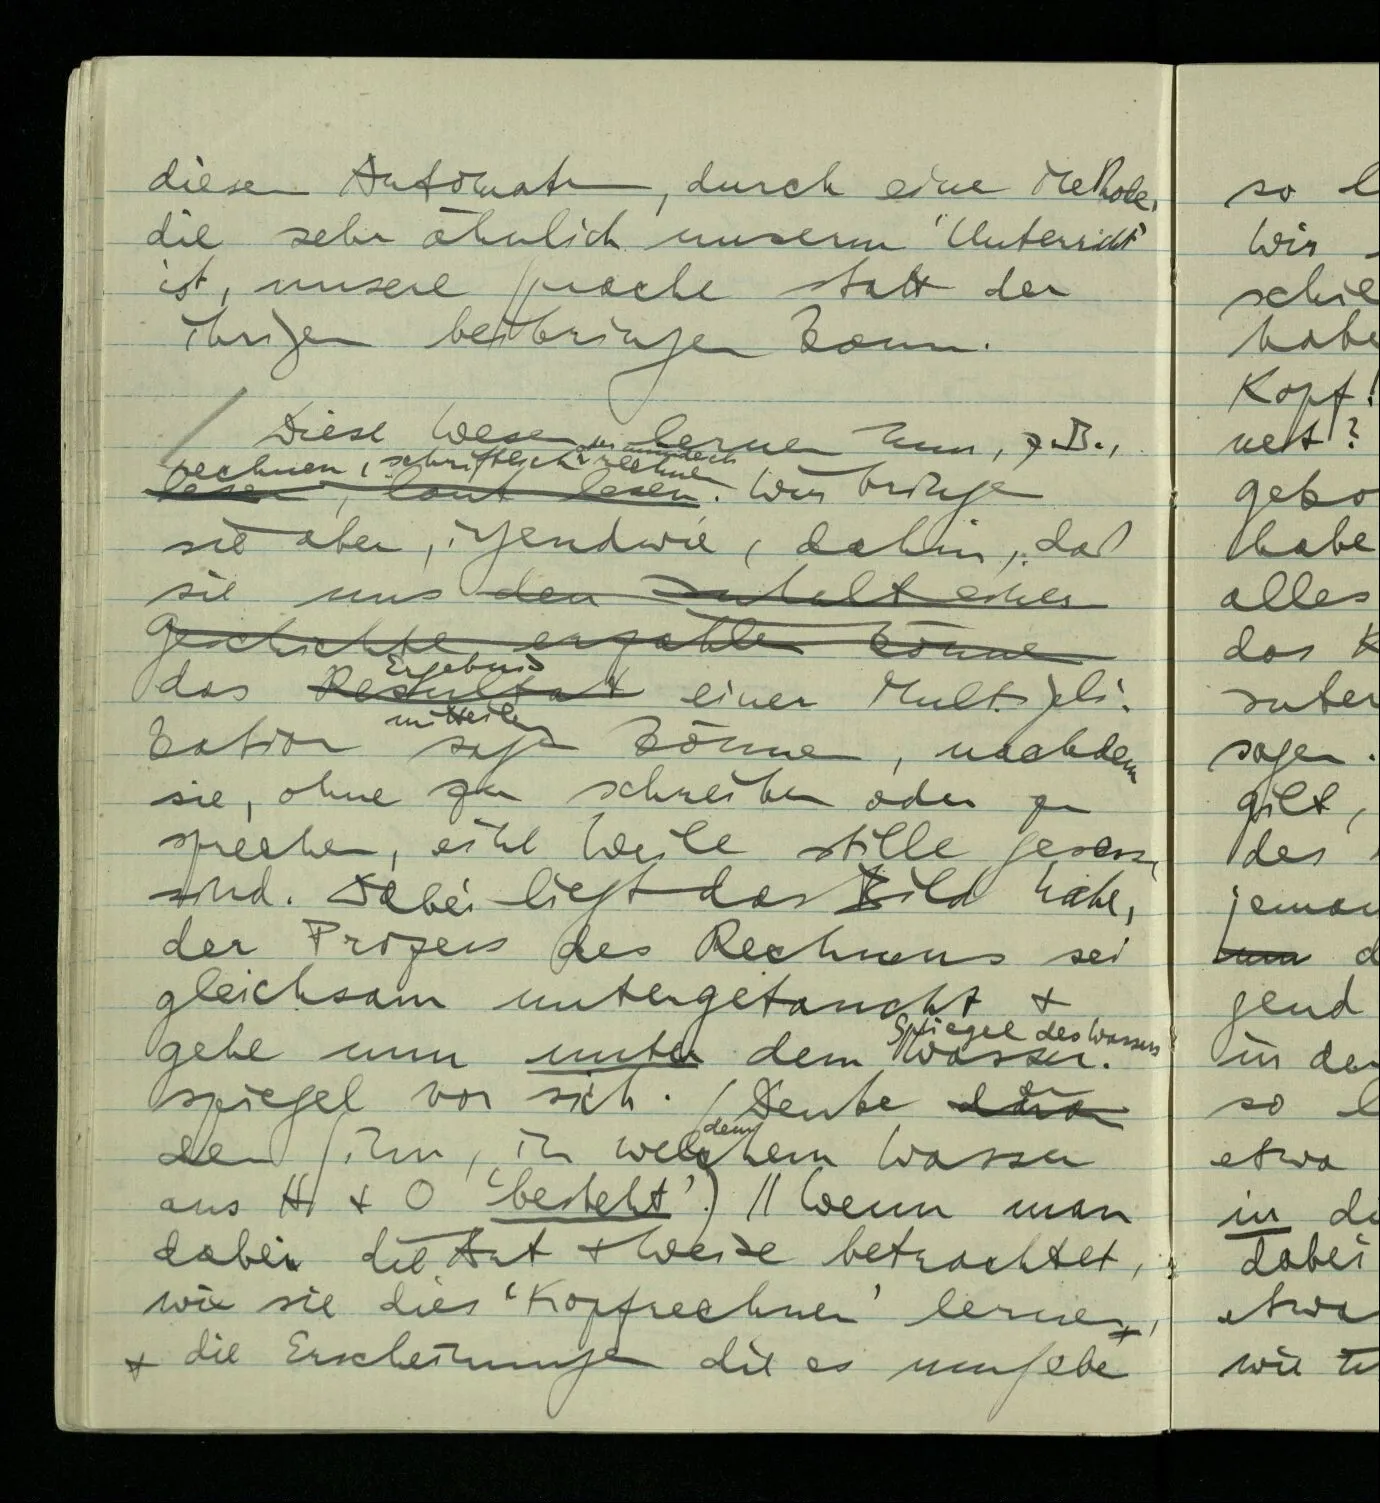 diesen Automaten, durch eine Methode,
die sehr ähnlich unserm 'Unterricht'
ist, unsere Sprache statt der
ihrigen beibringen kann.
/ Diese Wesen lernen nun, z.B.,
rechnen, schriftlich oder mündlich rechnen
lesen, laut lesen. Wir bringen
sie aber, irgendwie, dahin, daß
sie uns den Inhalt einer
Geschichte erzählen können
Ergebnis
das Resultat einer Multipli-
mitteilen
kation sagen können, nachdem
sie, ohne zu schreiben oder zu
sprechen, eine Weile stille gesessen
sind. Dabei liegt das Bild nahe,
der Prozess des Rechnens sei
gleichsam untergetaucht &
Spiegel des Wassers
gehe nun unter dem Wasser-
spiegel vor sich. (Denke daran
dem
den Sinn, in welchem Wasser
aus H & O 'besteht'.) || Wenn man
dabei die Art & Weise betrachtet,
wie sie dies 'Kopfrechnen' lernen,
& die Erscheinungen die es umgeben
so
Wir
Kopf!
habe
alles
das K
sagen.
gilt,
des
um d
in de
so
etwa
in di
dabei
etwa
wie